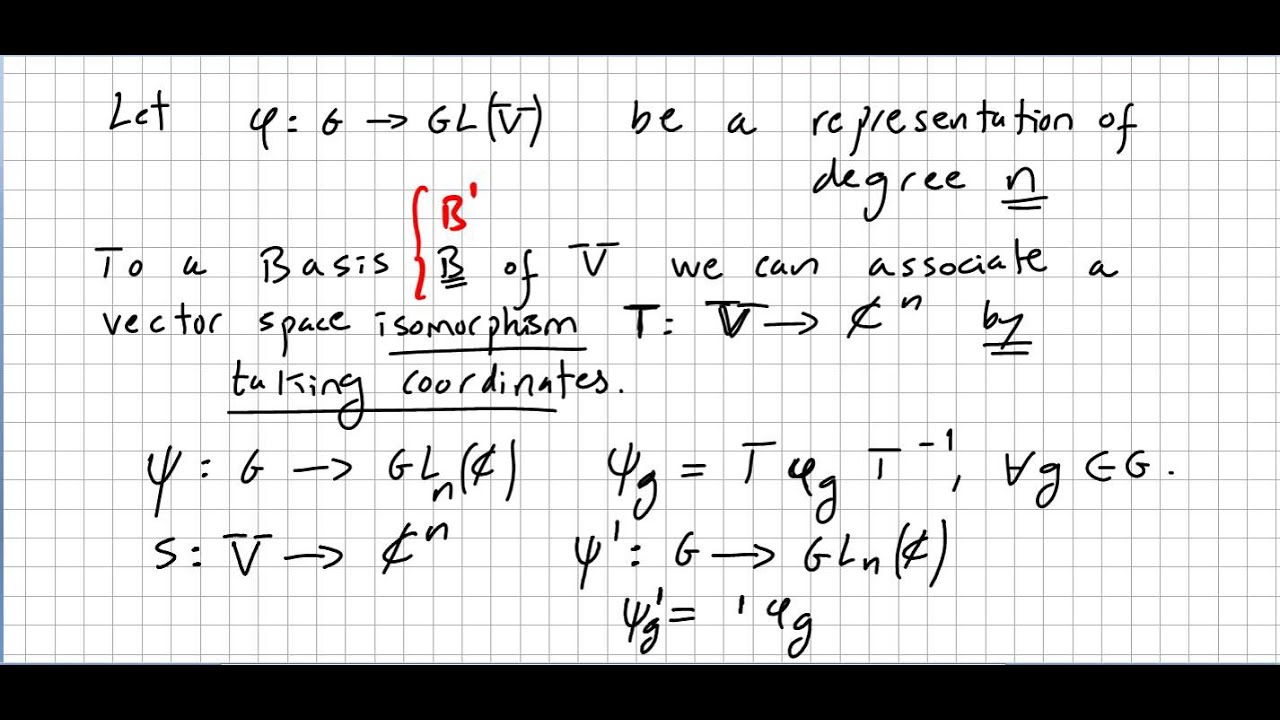 Let φ: G → GL(V) be a representation of
degree n
B'
To a Basis B of V we can associate a
vector space isomorphism T: V → ℂⁿ by
taking coordinates.
ψ: G → GLₙ(ℂ) ψ_g = T φ_g T⁻¹, ∀g ∈ G.
S: V → ℂⁿ ψ': G → GLₙ(ℂ)
ψ'_g = ' φ_g